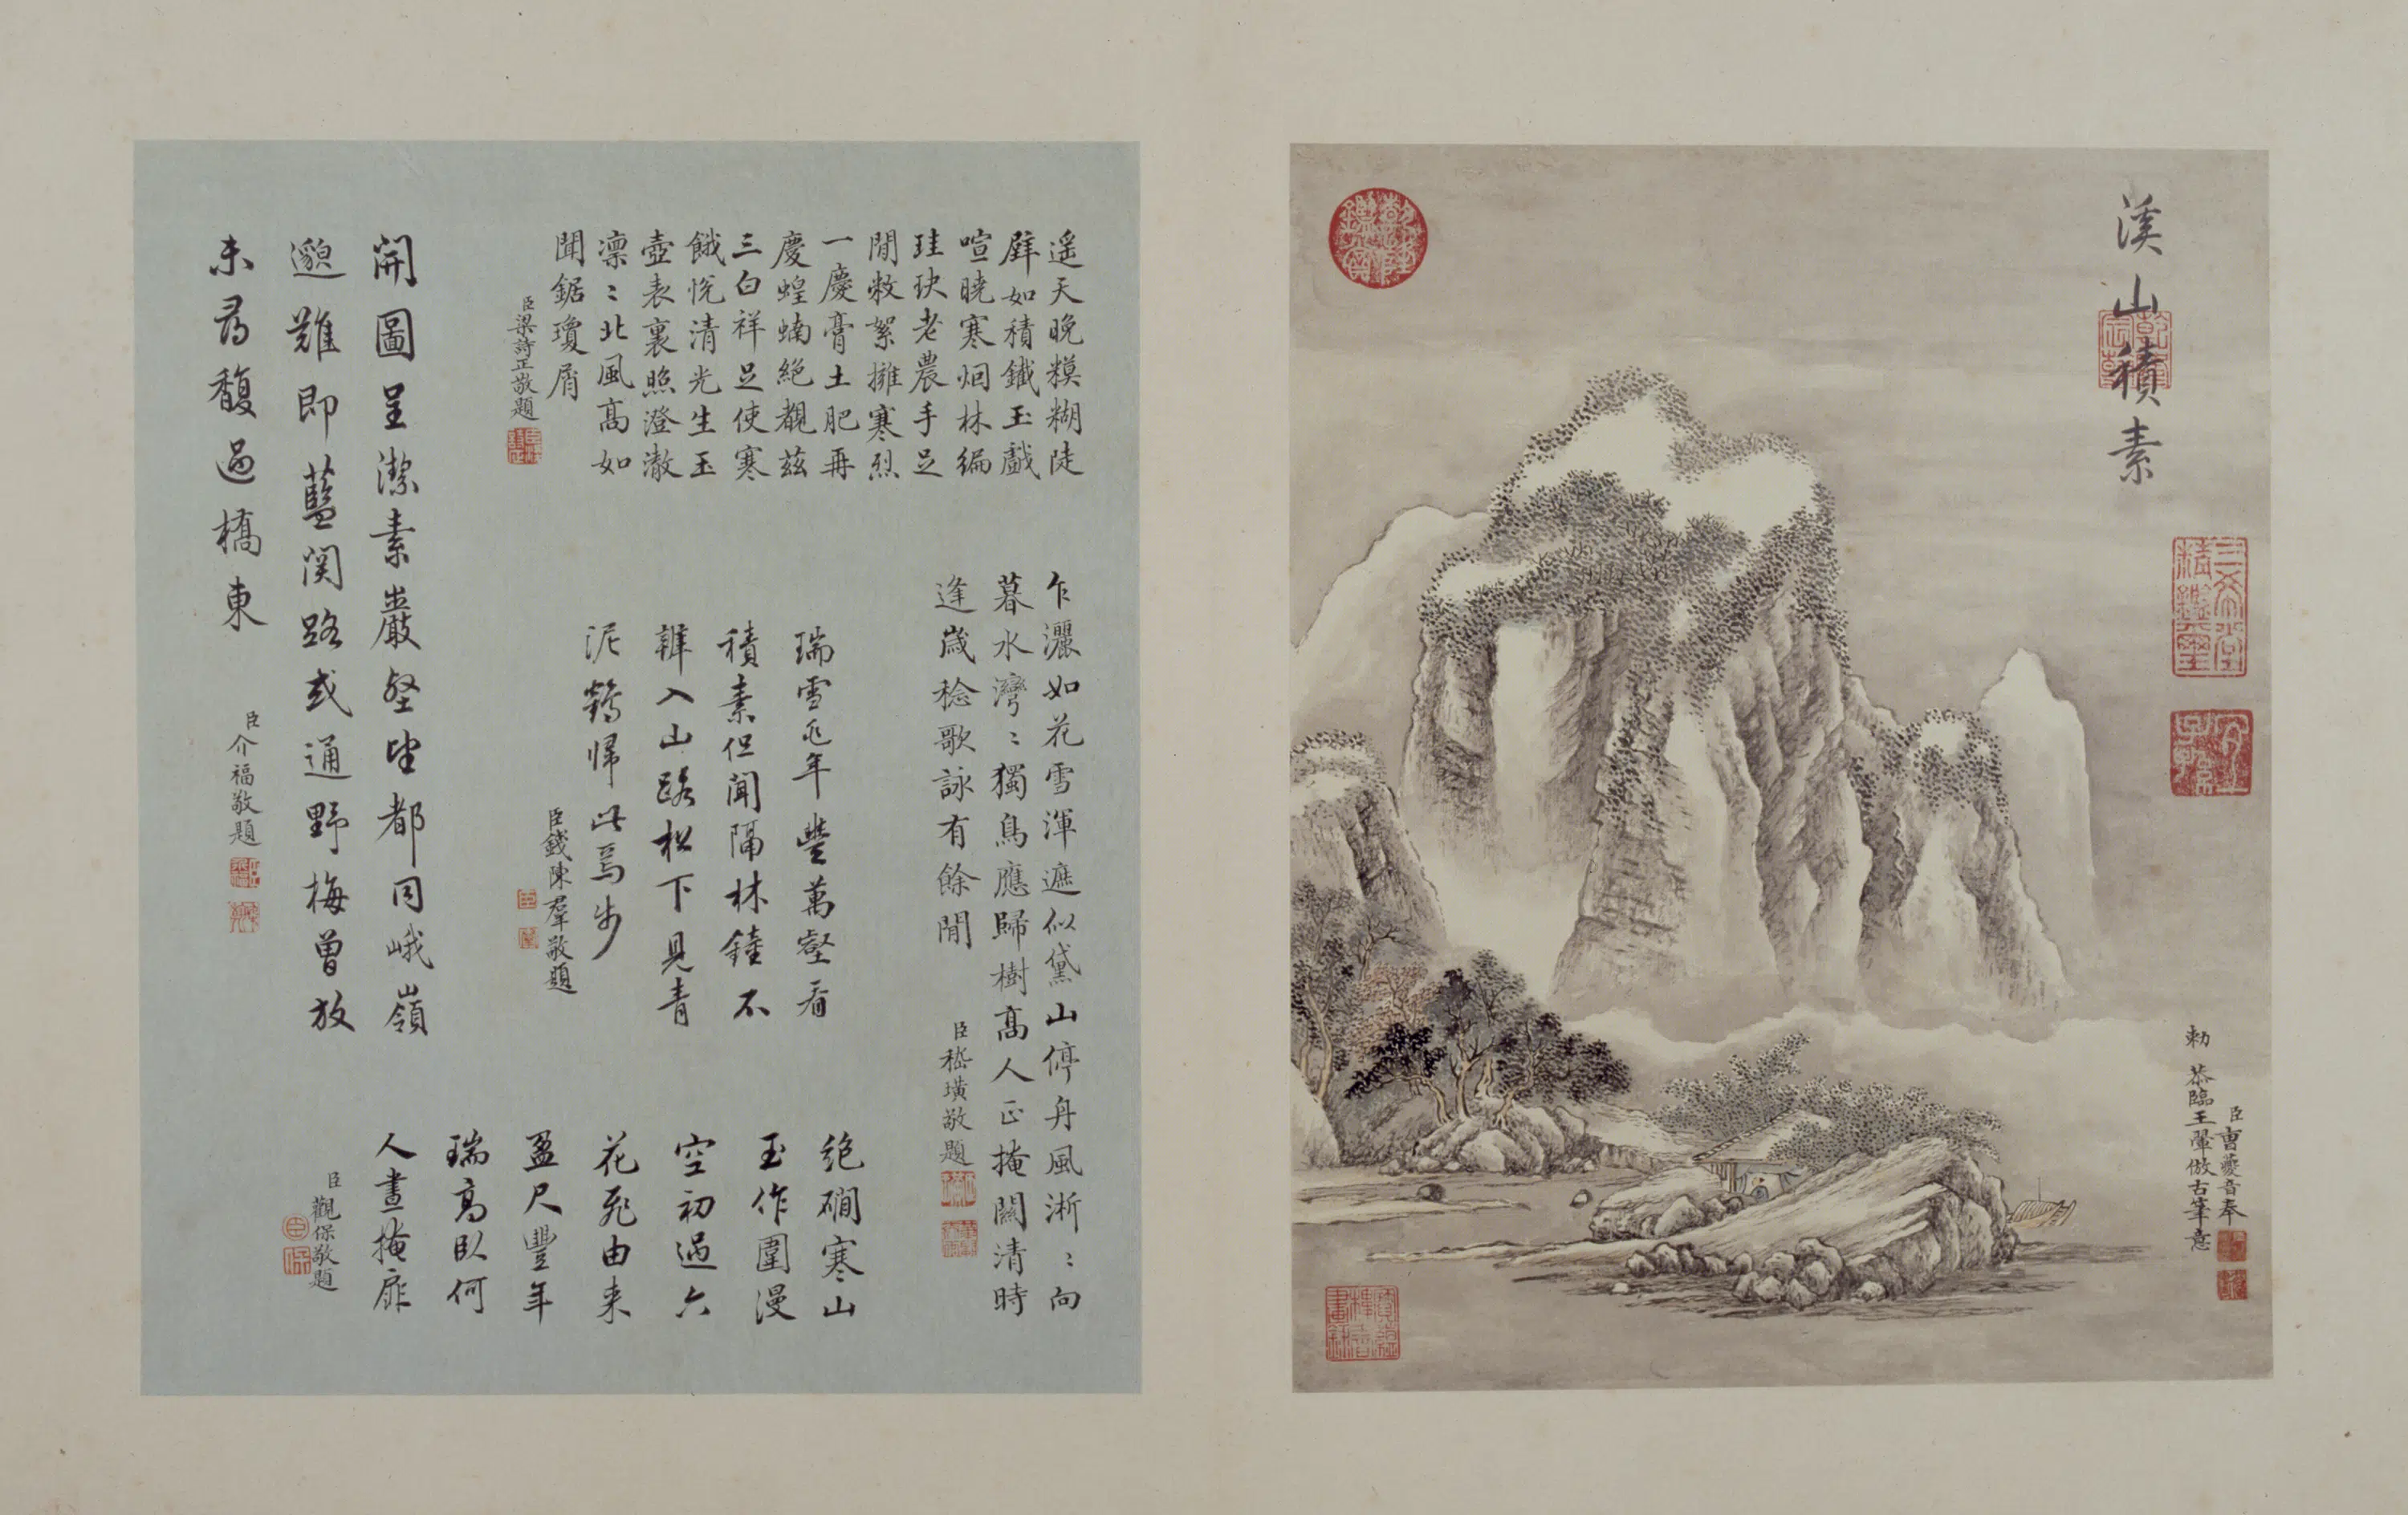 溪山積素
臣曹夔音奉
勅恭臨王翬倣古筆意
遥天晚糢糊陡
壁如積鐵玉戲
喧曉寒烟林編
珪玦老農手足
閒敕絮擁寒烈
一慶膏土肥再
慶蝗蝻絕覩茲
三白祥足使寒
餓悅清光生玉
壺表裏照澄澈
凛〻北風高如
聞鋸瓊屑
臣梁詩正敬題
乍灑如花雪渾遮似黛山停舟風淅〻向
暮水灣〻獨鳥應歸樹高人正掩關清時
逢歲稔歌詠有餘閒
臣嵇璜敬題
瑞雪兆年豐萬壑看
積素但聞隔林鐘不
辨入山路松下見青
泥鶴帰此焉步
臣錢陳羣敬題
絶磵寒山
玉作圍漫
空初過六
花飛由来
盈尺豐年
瑞高臥何
人晝掩扉
臣觀保敬題
開圖呈潔素巖壑望都同峨嶺
邈難即藍関路或通野梅曾放
未尋馥過橋東
臣介福敬題